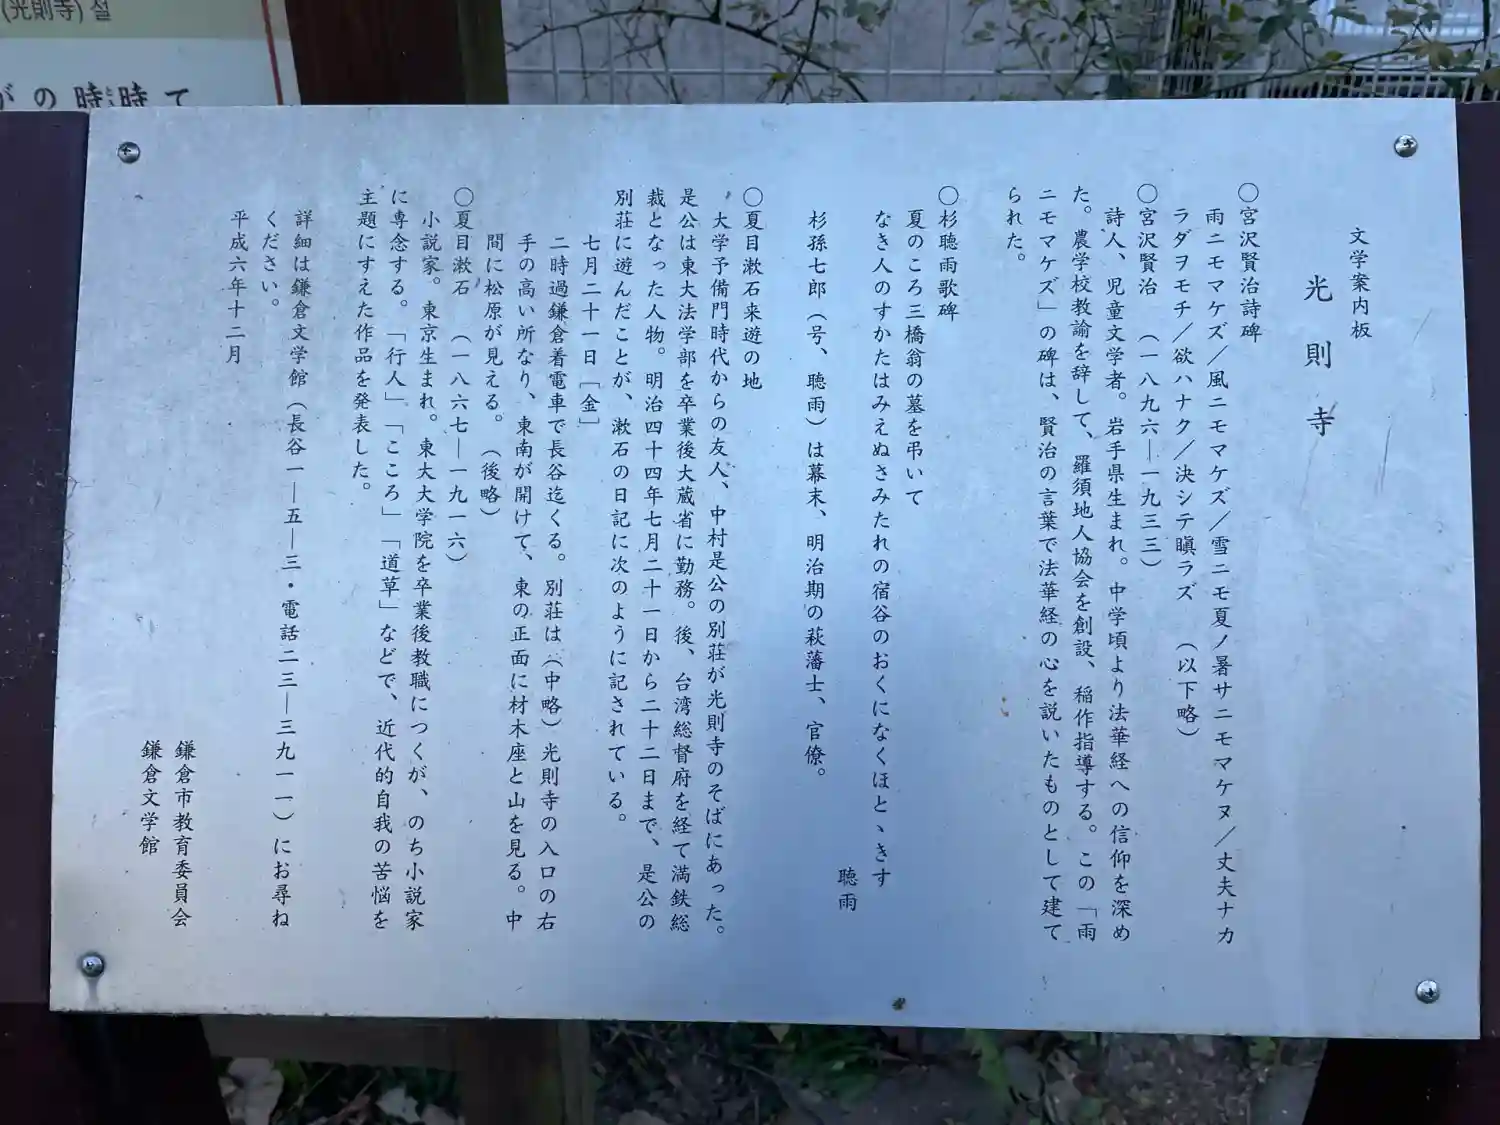 (光則寺) 설
がの時時て
文学案内板
光則寺
○宮沢賢治詩碑
雨ニモマケズ／風ニモマケズ／雪ニモ夏ノ暑サニモマケヌ／丈夫ナカ
ラダヲモチ／欲ハナク／決シテ瞋ラズ　（以下略）
○宮沢賢治　（一八九六―一九三三）
詩人、児童文学者。岩手県生まれ。中学頃より法華経への信仰を深め
た。農学校教諭を辞して、羅須地人協会を創設、稲作指導する。この「雨
ニモマケズ」の碑は、賢治の言葉で法華経の心を説いたものとして建て
られた。
○杉聴雨歌碑
夏のころ三橋翁の墓を弔いて
なき人のすかたはみえぬさみたれの宿谷のおくになくほとゝきす
聴雨
杉孫七郎（号、聴雨）は幕末、明治期の萩藩士、官僚。
○夏目漱石来遊の地
大学予備門時代からの友人、中村是公の別荘が光則寺のそばにあった。
是公は東大法学部を卒業後大蔵省に勤務。後、台湾総督府を経て満鉄総
裁となった人物。明治四十四年七月二十一日から二十二日まで、是公の
別荘に遊んだことが、漱石の日記に次のように記されている。
七月二十一日「金」
二時過鎌倉着電車で長谷迄くる。別荘は（中略）光則寺の入口の右
手の高い所なり、東南が開けて、東の正面に材木座と山を見る。中
間に松原が見える。（後略）
○夏目漱石　（一八六七―一九一六）
小説家。東京生まれ。東大大学院を卒業後教職につくが、のち小説家
に専念する。「行人」「こころ」「道草」などで、近代的自我の苦悩を
主題にすえた作品を発表した。
詳細は鎌倉文学館（長谷一―五―三・電話二三―三九一一）にお尋ね
ください。
平成六年十二月
鎌倉市教育委員会
鎌倉文学館